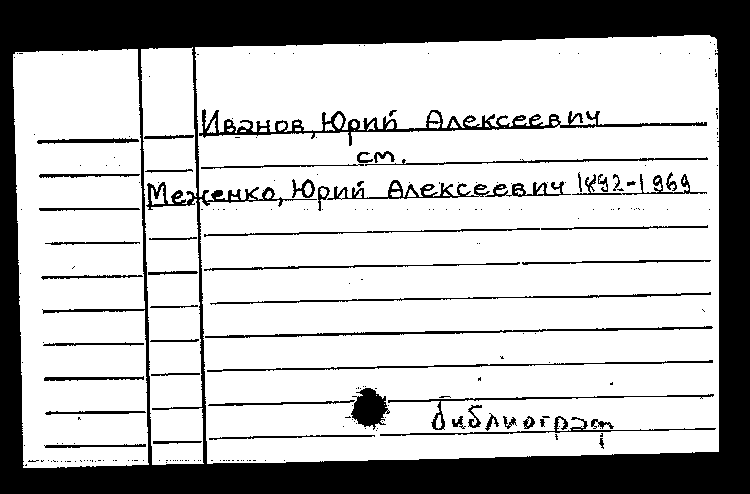 Иванов, Юрий Алексеевич
см.
Меженко, Юрий Алексеевич 1892-1969
библиограф